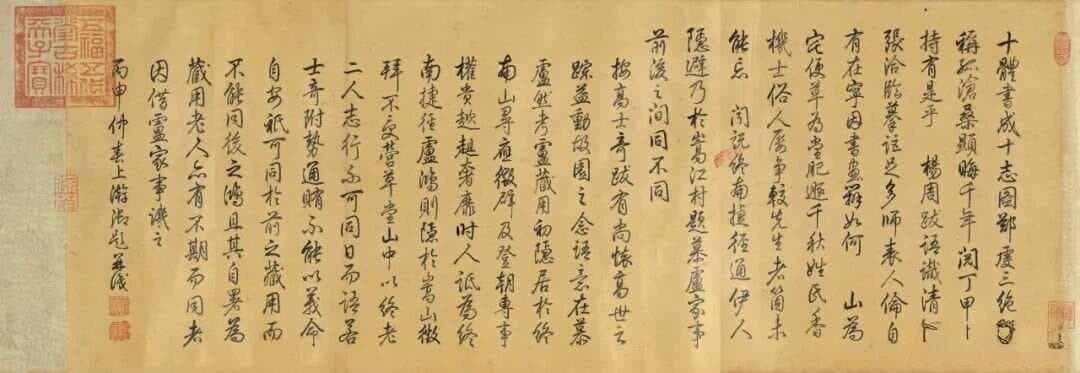 十體書成十志圖鄭虔三絕
稱孤滄桑顯晦千年閱丁甲
持有是乎 楊周跋語識清
張洽臨摹詎足多師表人倫自
有在寧因書畫辨如何 山為
宅便草為堂肥遯千秋姓氏香
機士俗人屢爭較先生老箇未
能忘 聞說終南捷徑通伊人
隱避乃於嵩江村題慕盧家事
前後之間同不同
按高士奇跋有尚懷高世之
踪益動故園之念語意在慕
盧然考盧藏用初隱居於終
南山尋應徵辟及登朝專事
權貴趑趄奢靡時人詆為終
南捷徑盧鴻則隱於嵩山徵
拜不受營草堂山中以終老
二人志行不可同日而語若
士奇附勢通賄不能以義命
自安祗可同於前之藏用而
不能同後之鴻且其自署為
藏用老人亦有不期而同者
因借盧家事譏之
丙申仲春上澣御題並識
五福五代
堂古稀
天子寶